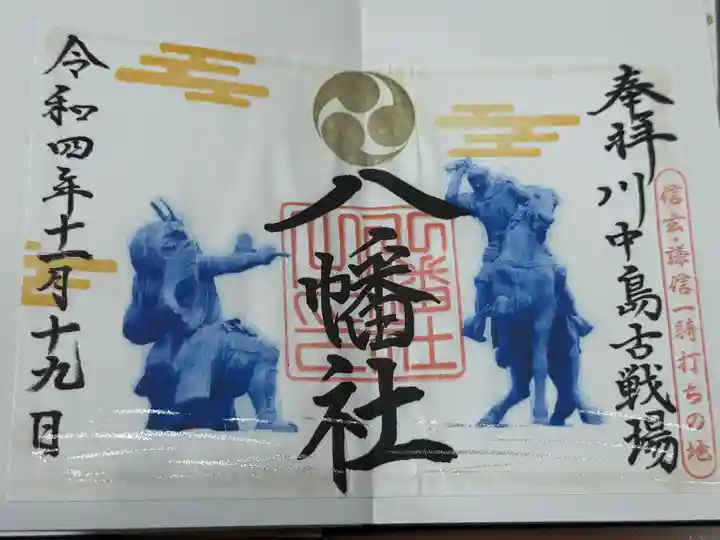 奉拝川中島古戦場
信玄・謙信一騎打ちの地
八幡社
八幡社
令和四年十一月十九日